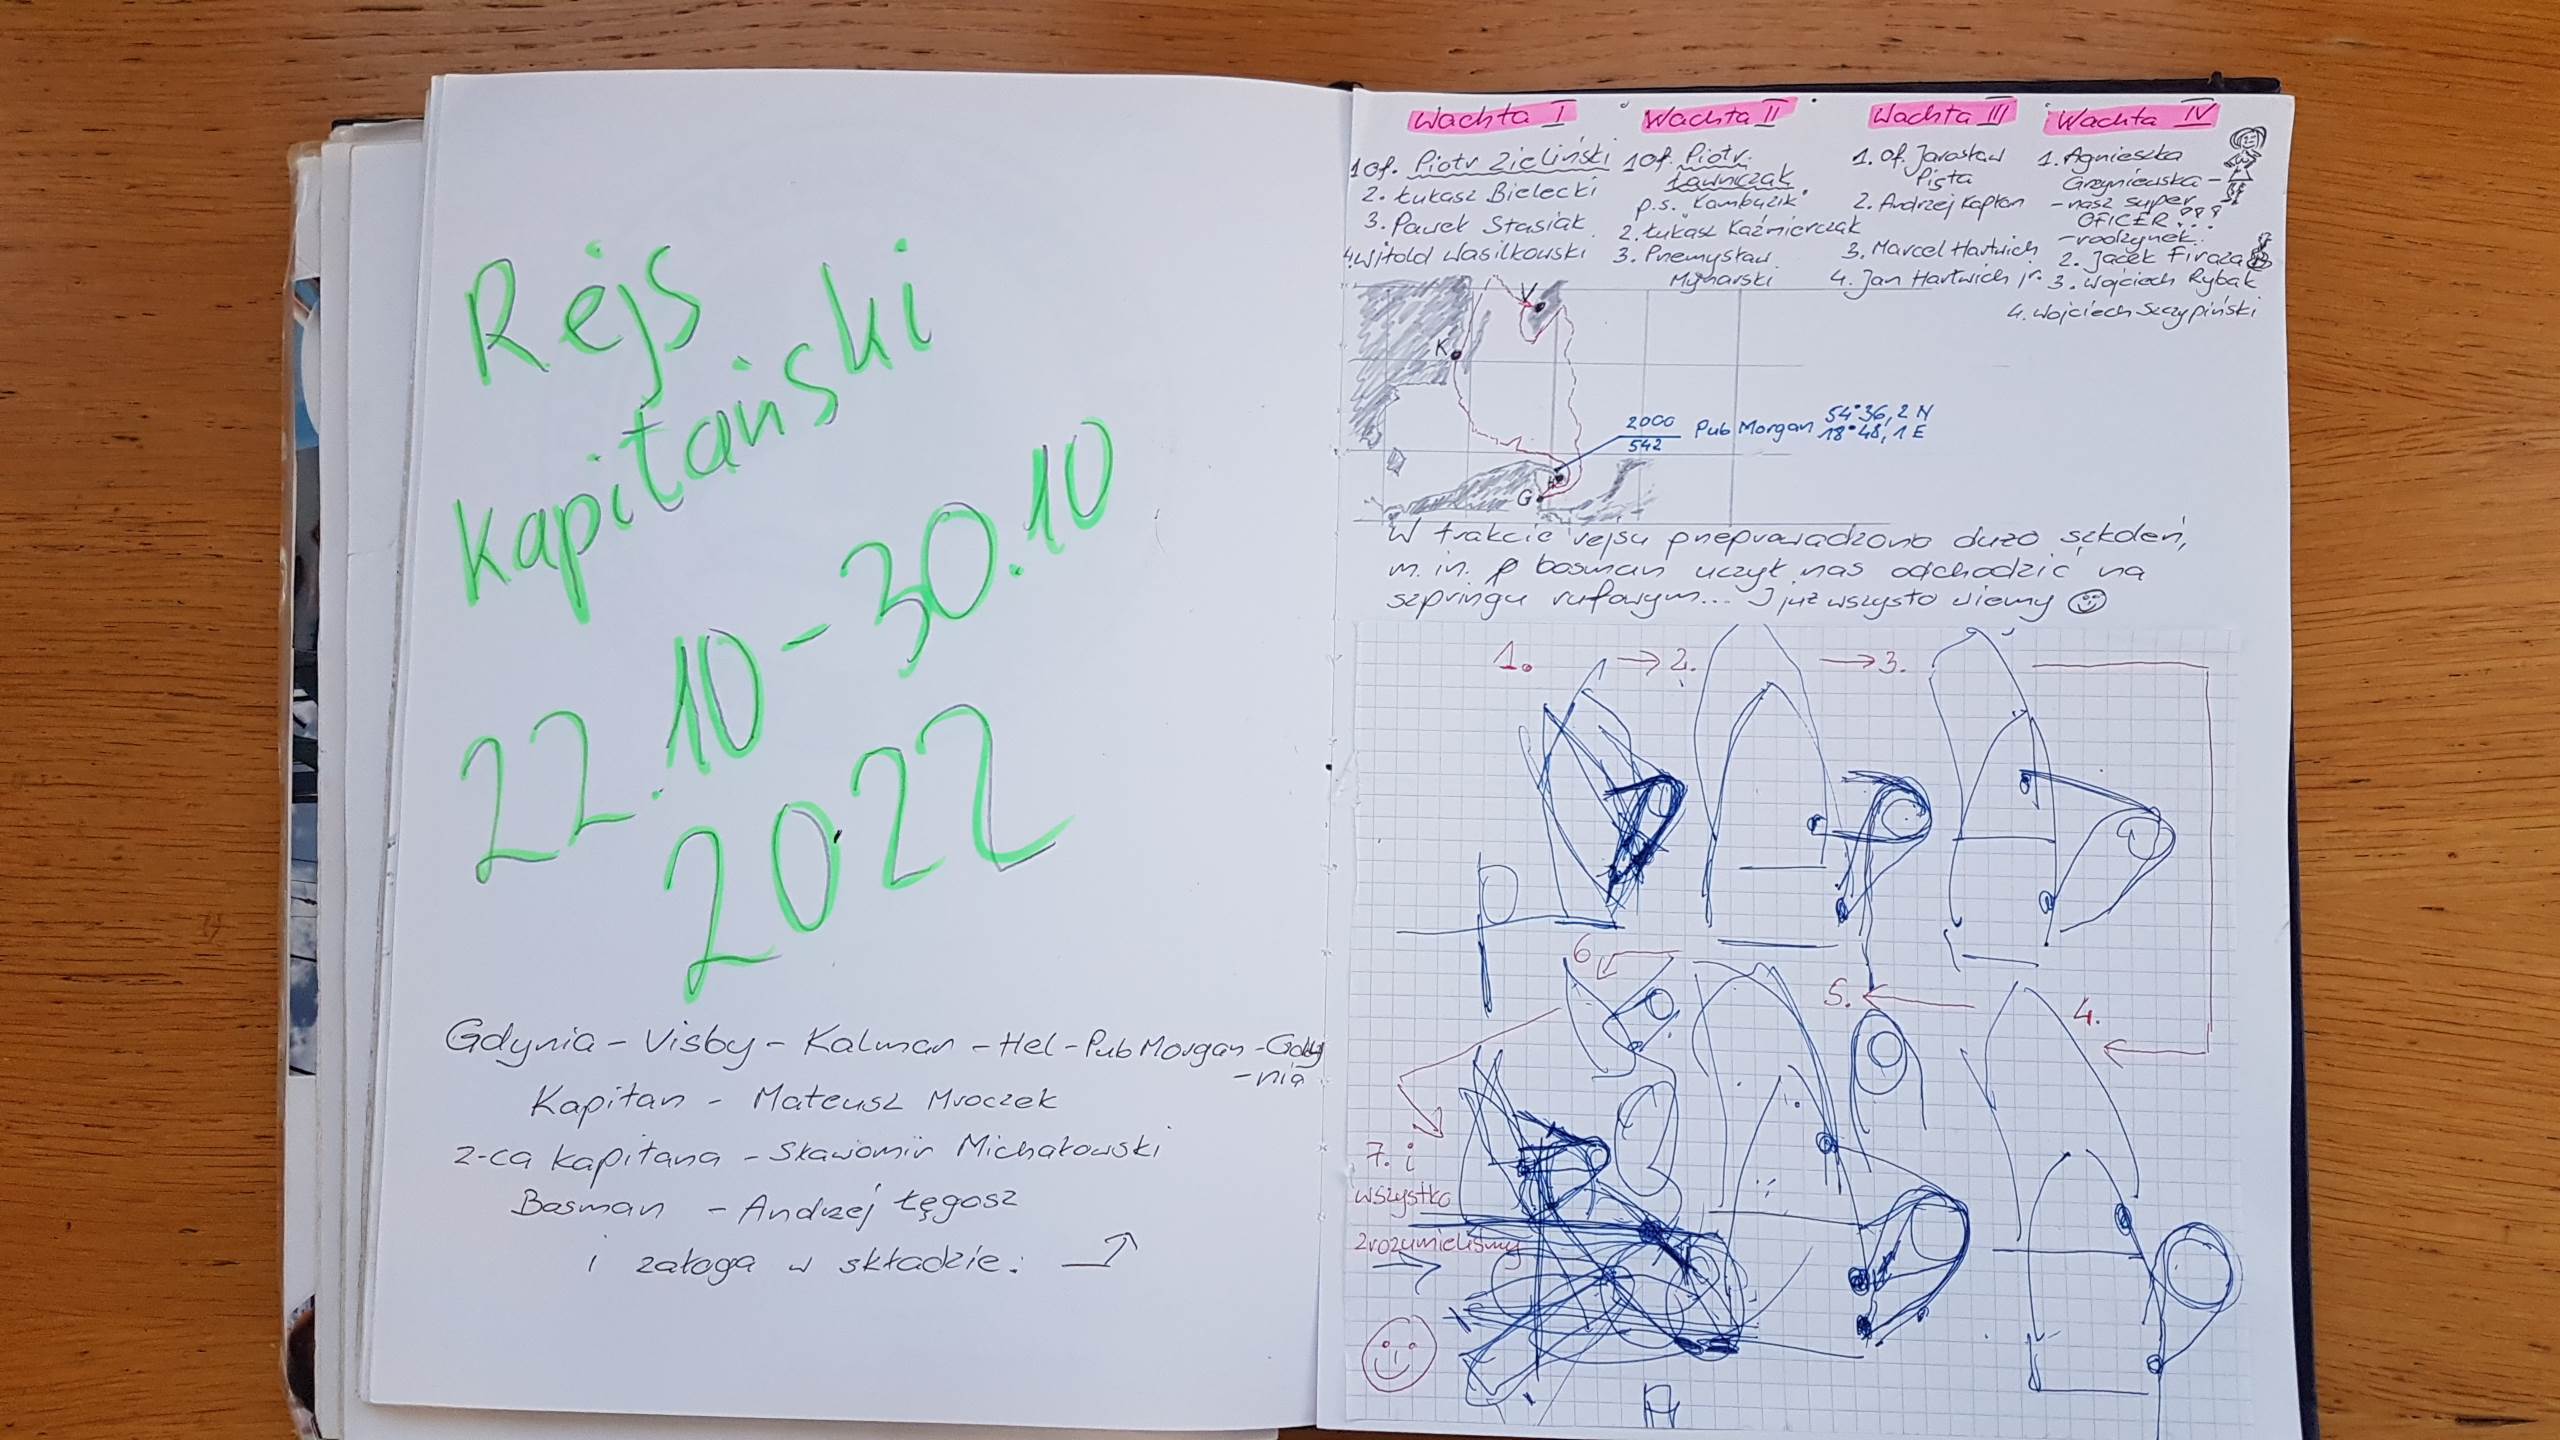 Rejs
Kapitański
22.10 - 30.10
2022
Gdynia - Visby - Kalmar - Hel - Pub Morgan - Gdy
- nia
Kapitan - Mateusz Mroczek
z-ca kapitana - Sławomir Michałowski
Bosman - Andrzej Łęgosz
i załoga w składzie:
Wachta I
1 of. Piotr Zieliński
2. Łukasz Bielecki
3. Paweł Stasiak
4. Witold Wasilkowski
Wachta II
1 of. Piotr
Ławniczak
p.s. "Kambuzik"
2. Łukasz Kaźmierczak
3. Przemysław
Młynarski
Wachta III
1. of. Jarosław
Pięta
2. Andrzej Kapłon
3. Marcel Hartwich
4. Jan Hartwich jr.
Wachta IV
1. Agnieszka
Grzyniewska -
- nasz super
OFICER !!!
- rodzynek
2. Jacek Firaza
3. Wojciech Rybak
4. Wojciech Szczypiński
V
K
2000
542
Pub Morgan 54°36,2 N
18°48,1 E
H
G
W trakcie rejsu przeprowadzono dużo szkoleń,
m.in. p bosman uczył nas odchodzić na
szpringu rufowym... I już wszysto wiemy
1. → 2. → 3.
6 5. 4.
7. i
wszystko
zrozumieliśmy